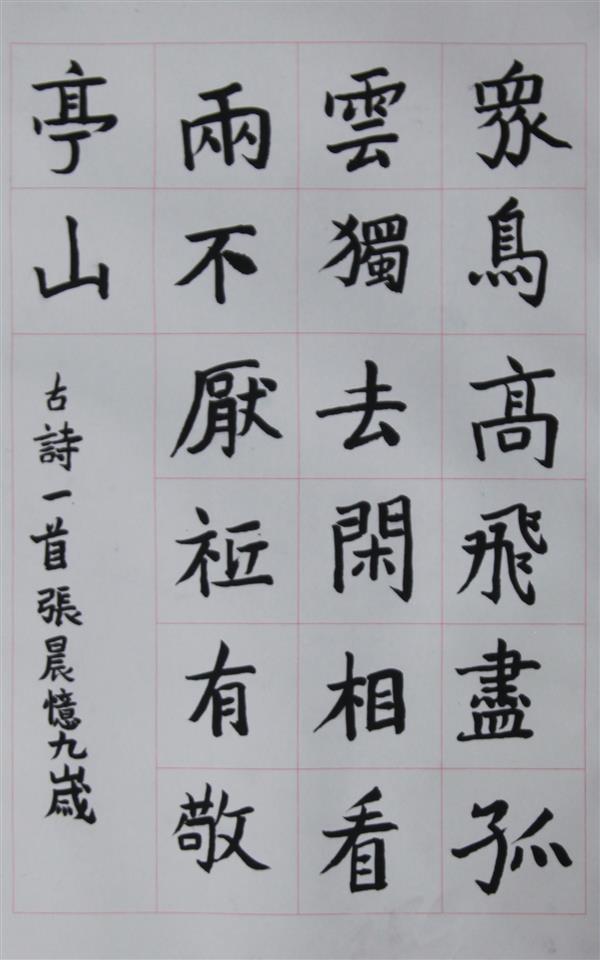 衆鳥高飛盡孤
雲獨去閑相看
兩不厭祗有敬
亭山
古詩一首張晨憶九歲